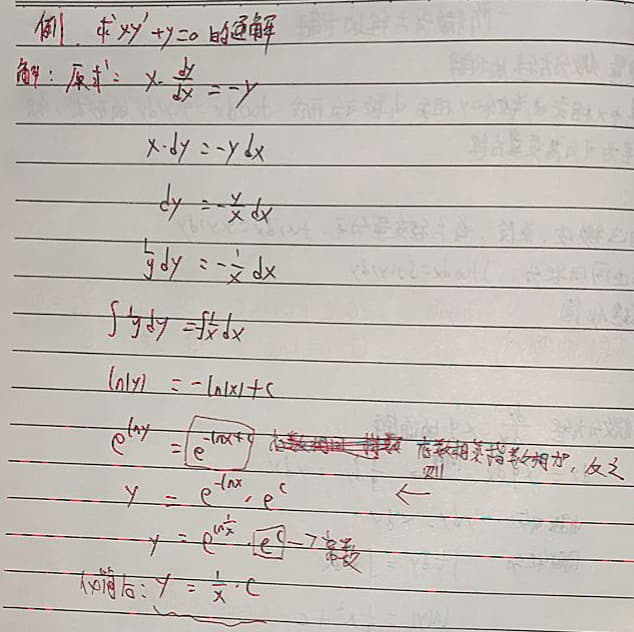 例1. 求xy'+y=0的通解
解:原式: x·dy/dx=-y
x·dy=-ydx
dy=-y/x dx
1/y dy=-1/x dx
∫1/y dy=∫-1/x dx
ln|y|=-ln|x|+c
e^lny=e^-lnx+c 底数相乘指数相加,反之
则
y=e^-lnx·e^c ←
y=e^ln1/x·e^c→常数
化简后:y=1/x·c